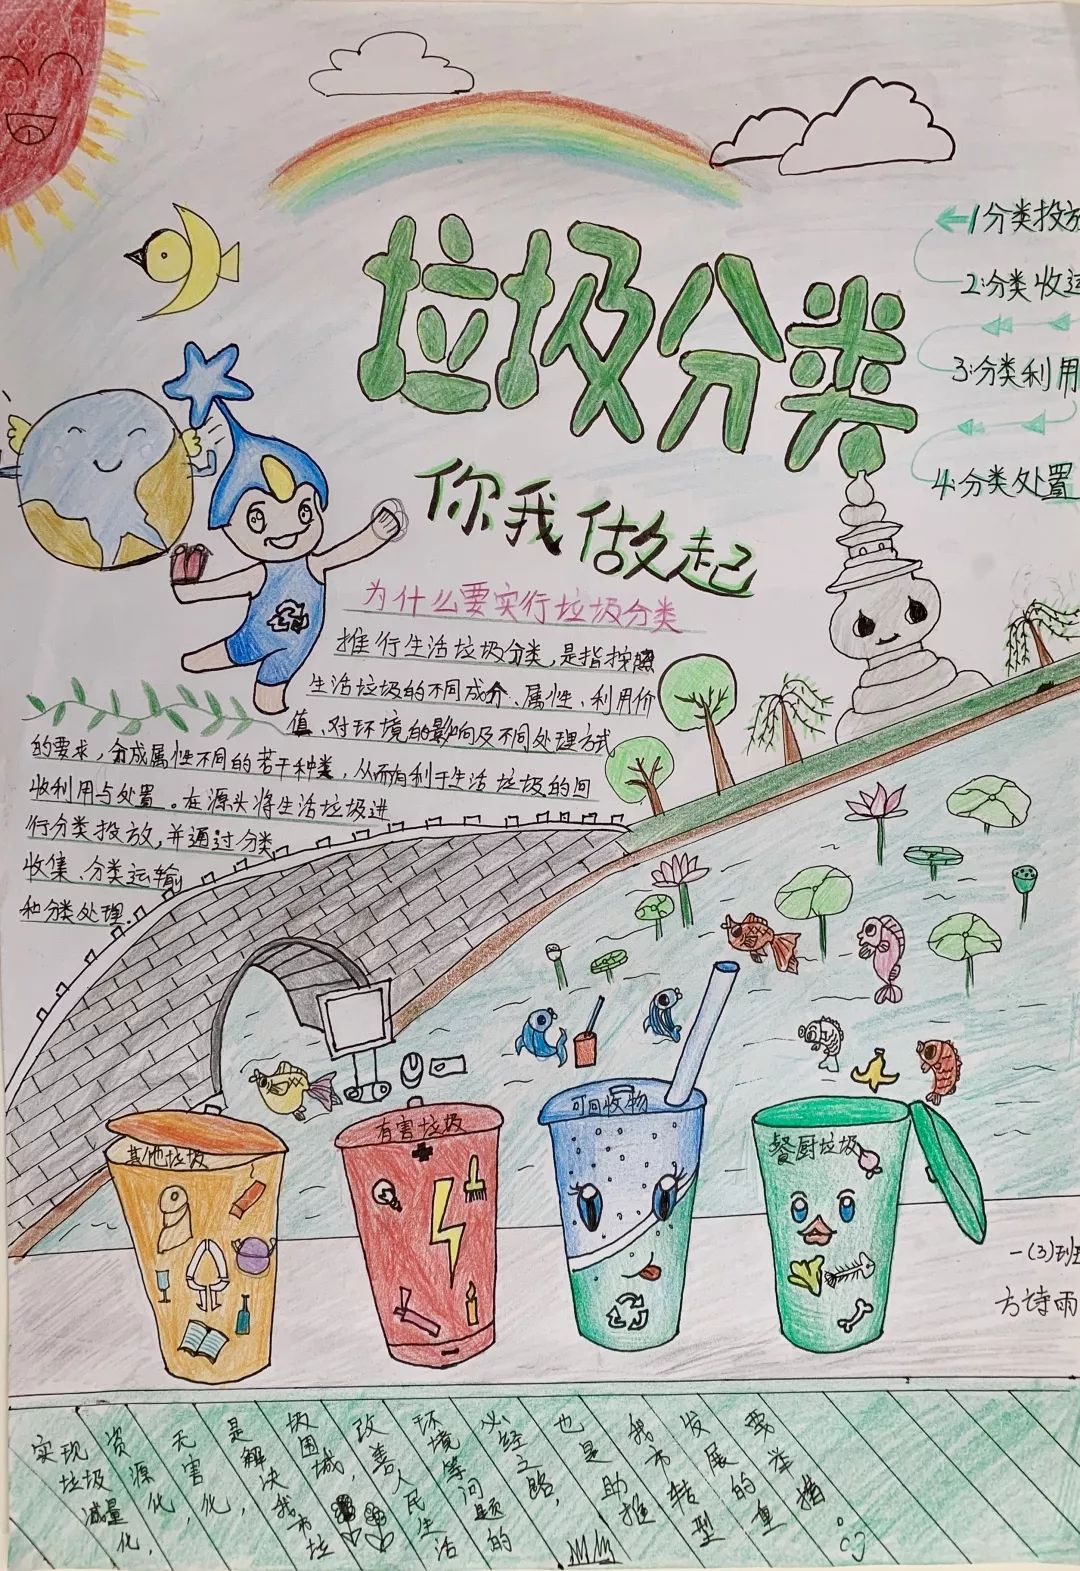 垃圾分类
你我做起
1分类投放
2:分类收运
3:分类利用
4:分类处置
为什么要实行垃圾分类
推行生活垃圾分类,是指按照
生活垃圾的不同成分、属性、利用价
值、对环境的影响及不同处理方式
的要求,分成属性不同的若干种类,从而有利于生活垃圾的回
收利用与处置。在源头将生活垃圾进
行分类投放,并通过分类
收集、分类运输
和分类处理.
其他垃圾
有害垃圾
可回收物
餐厨垃圾
一(3)班
方诗雨
实现垃圾减量化,
资源化,
无害化,
是解决我市垃
圾围城,
改善人民生活
环境等问题的
必经之路,
也是助推
我市转型
发展的重
要举措。